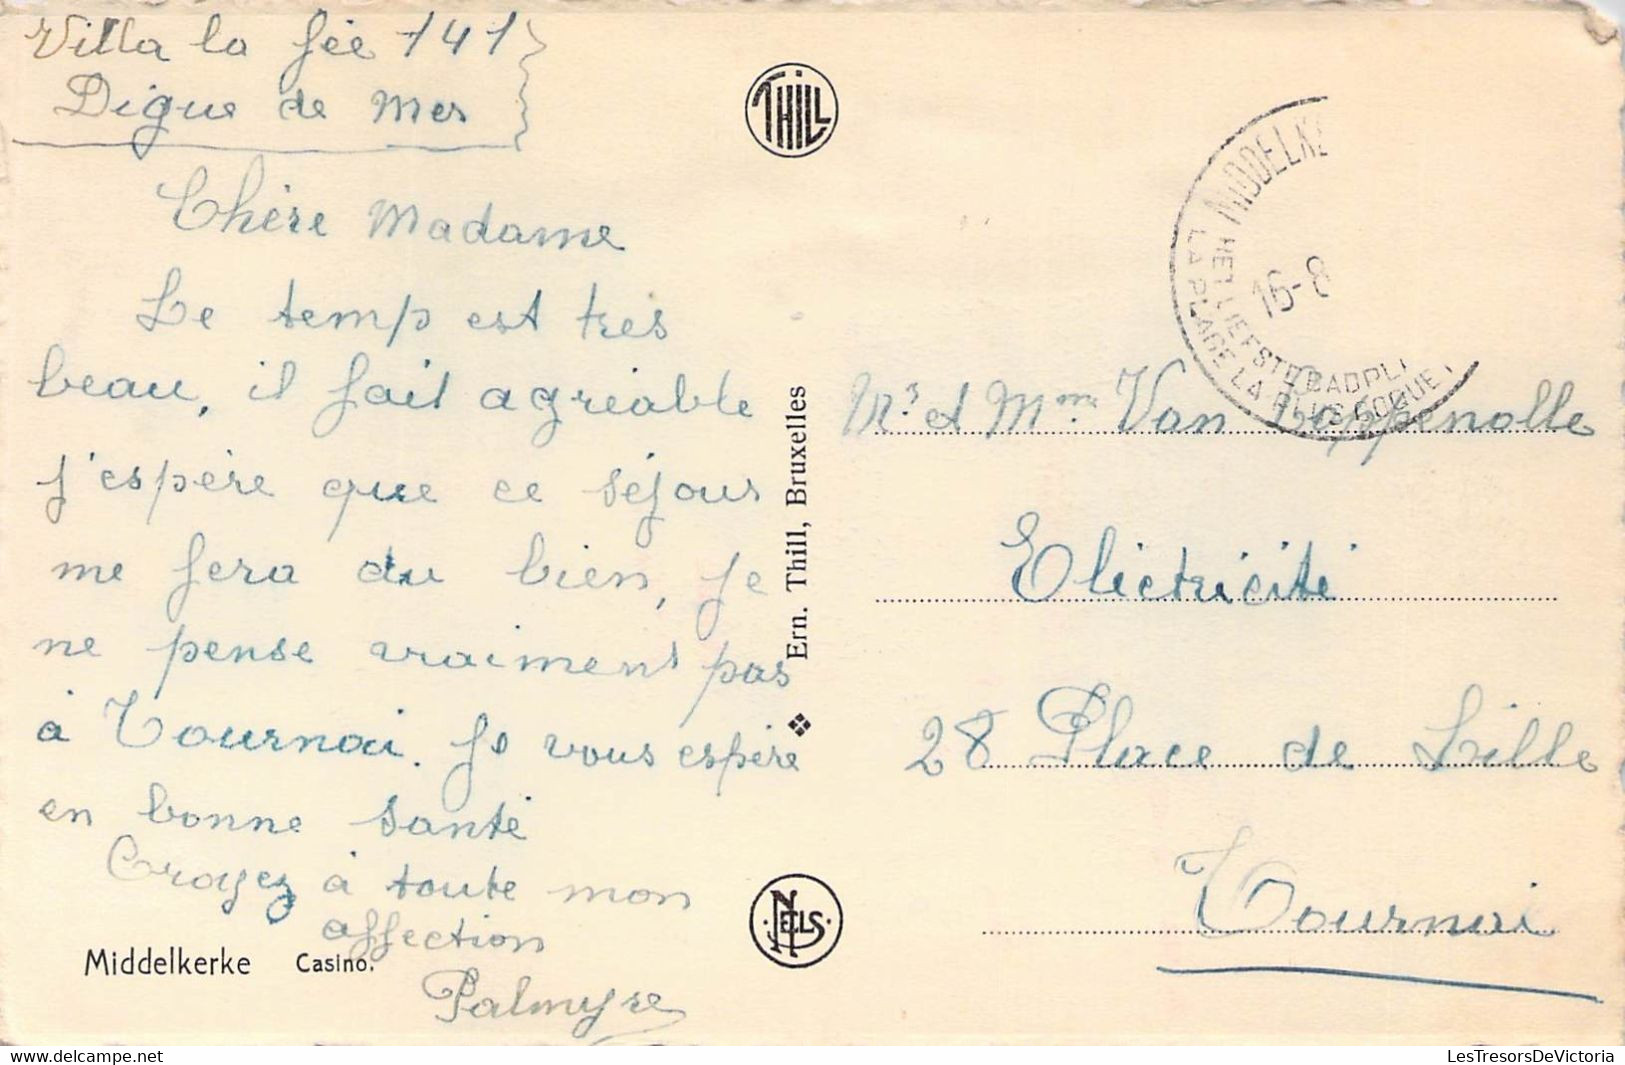 Villa la fée 141
Digue de Mer
Chère Madame
Le temp est très
beau, il fait agréable
j'espère que ce séjour
me fera du bien, je
ne pense vraiment pas
à Tournai. Je vous espère
en bonne santé
Croyez à toute mon
affection
Palmyre
Middelkerke Casino.
THILL
Ern. Thill, Bruxelles
NELS
MIDDELKE
HET LIEFSTE BADPL
LA PLAGE LA PLUS COQUE
16-8
Mr et Mme Van Coppenolle
Eléctricité
28 Place de Lille
Tournai
LesTresorsDeVictoria